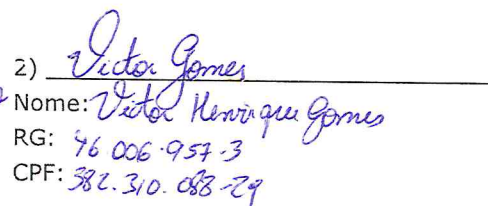 2) Victor Gomes
Nome: Victor Henrique Gomes
RG: 46 006.957-3
CPF: 382.310.088-29